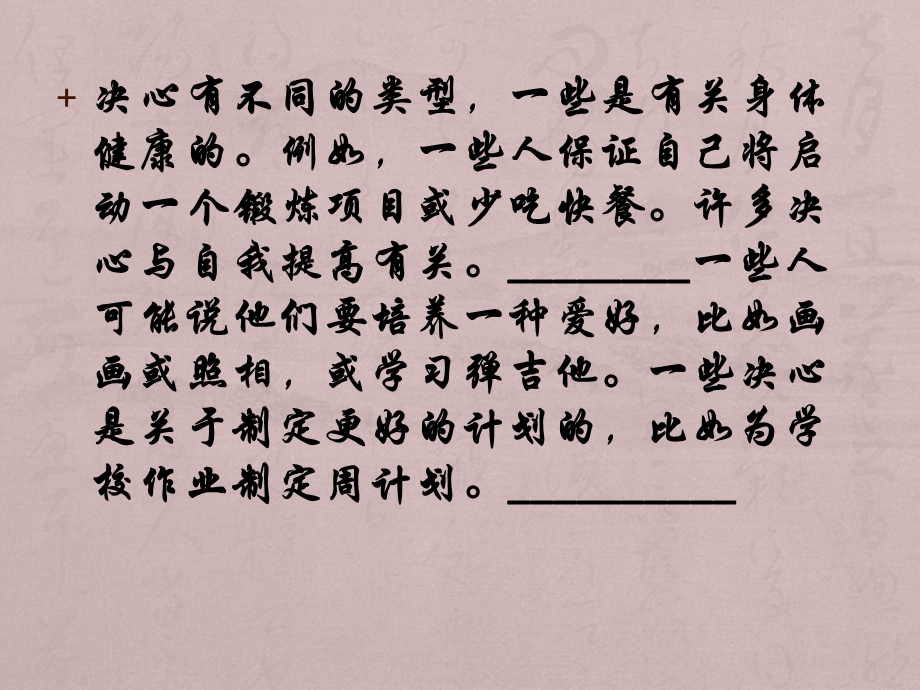 + 决心有不同的类型，一些是有关身体
健康的。例如，一些人保证自己将启
动一个锻炼项目或少吃快餐。许多决
心与自我提高有关。________一些人
可能说他们要培养一种爱好，比如画
画或照相，或学习弹吉他。一些决心
是关于制定更好的计划的，比如为学
校作业制定周计划。__________